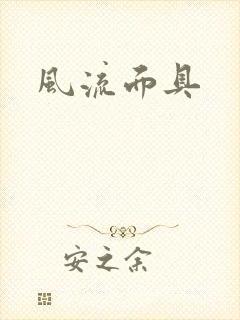 風流而具
安之余